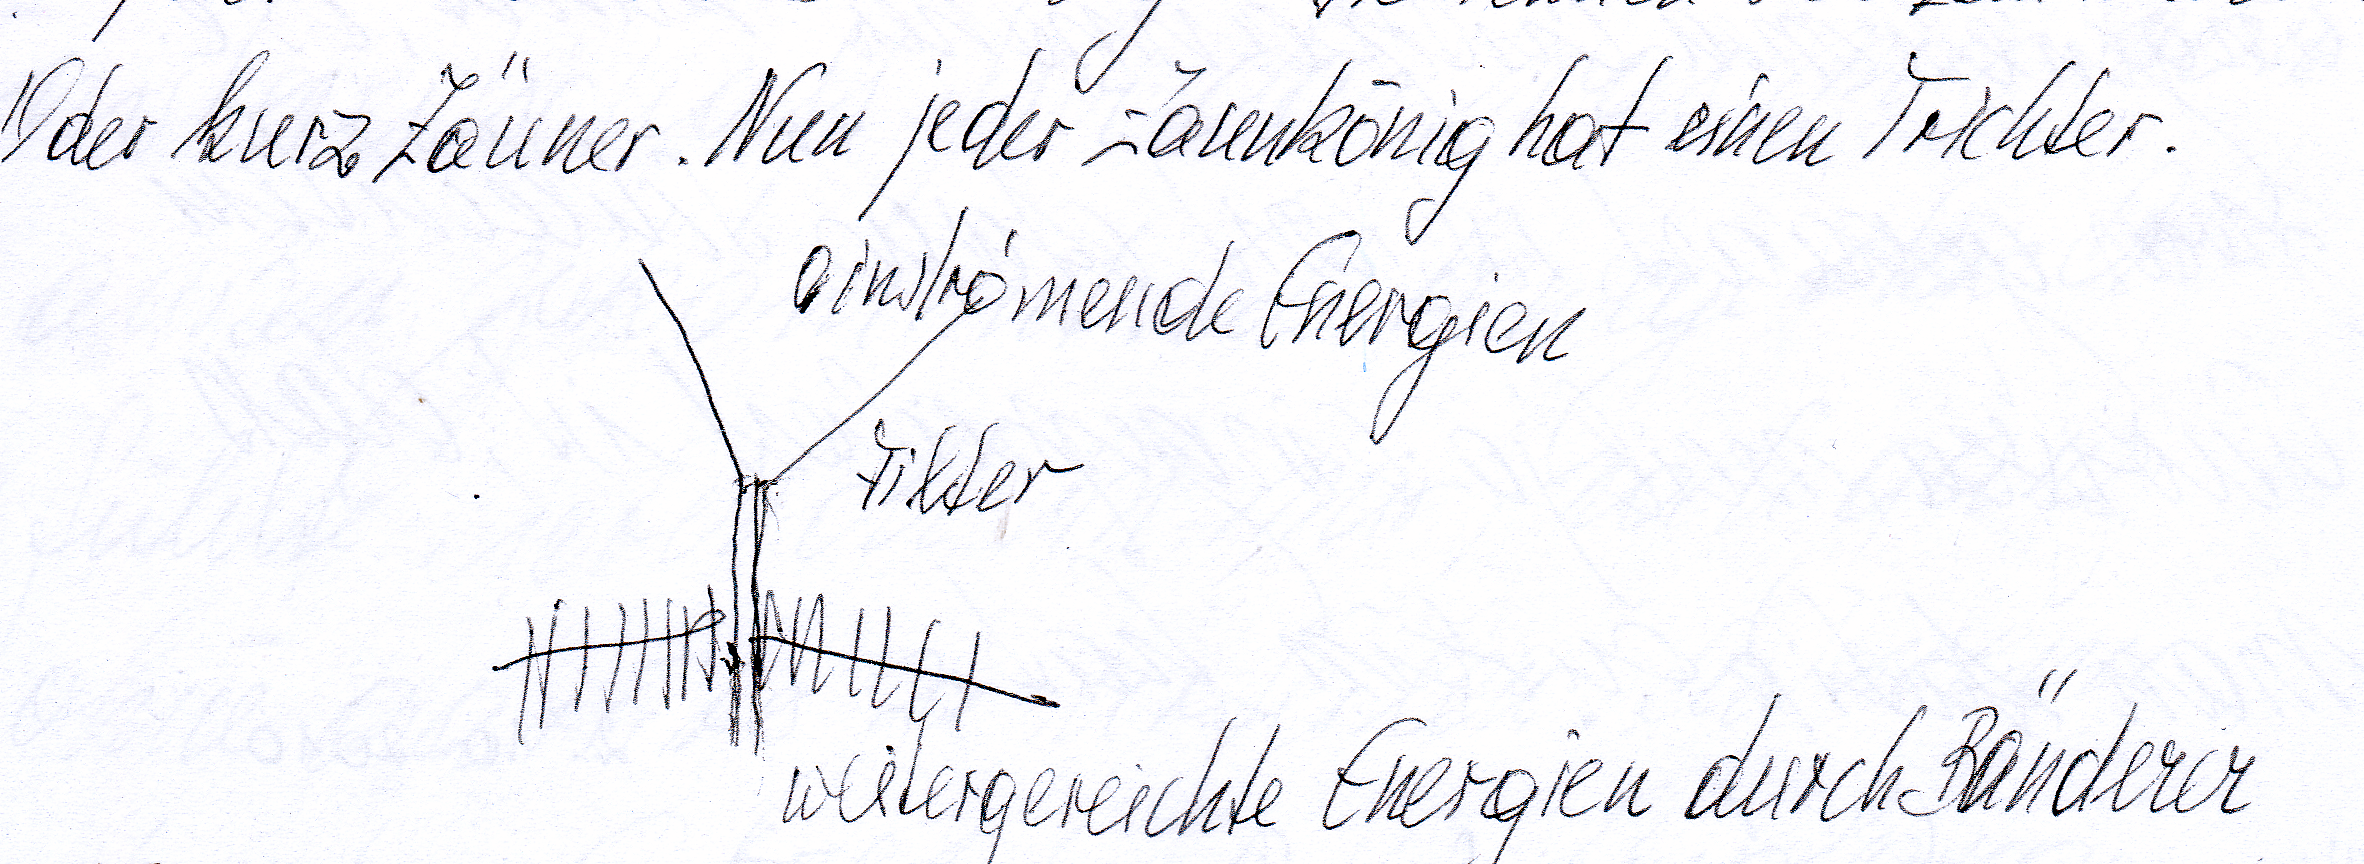 Oder kurz Zäuner. Nun jeder Zaunkönig hat einen Trichter.
einströmende Energien
Filter
weitergereichte Energien durch Bänderer